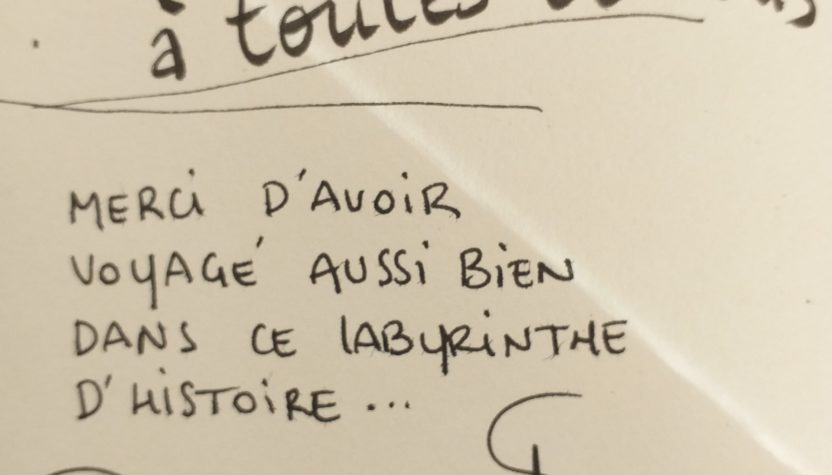 à toutes
MERCi D'AVOiR
VOYAGÉ AUSSi BiEN
DANS CE LABYRiNTHE
D'HiSTOiRE...